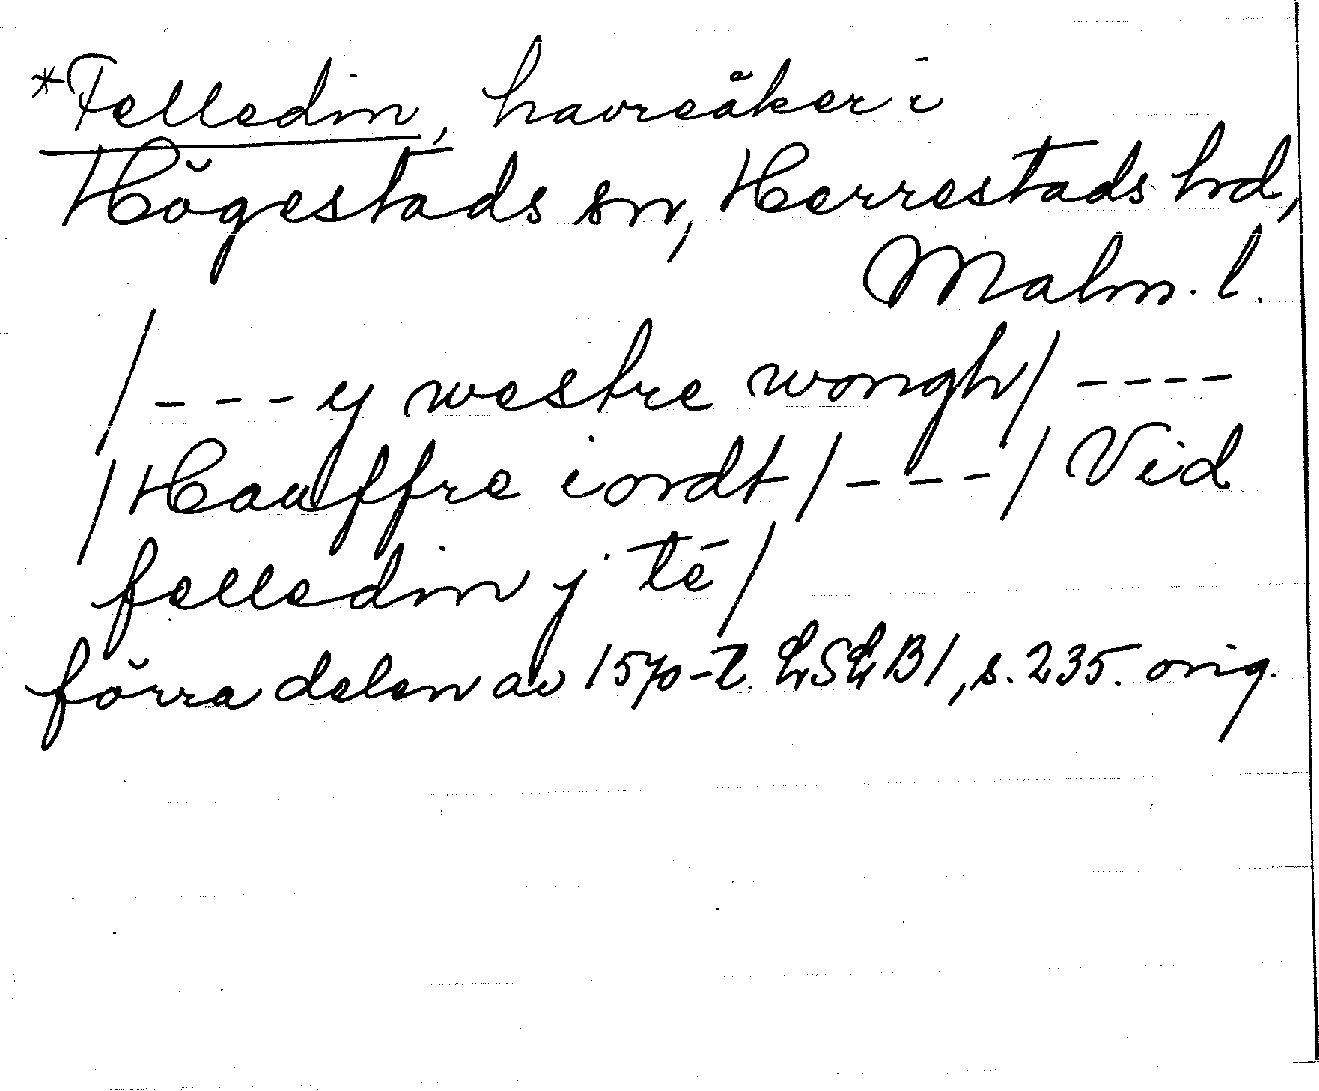 *Felledin, havreåker i
Högestads sn, Herrestads hd,
Malm. l.
/ - - - y westre wongh / - - - -
/ Hauffre iordt / - - - / Vid
felledin j té /
förra delen av 1570-t. LSLB1, s. 235. orig.